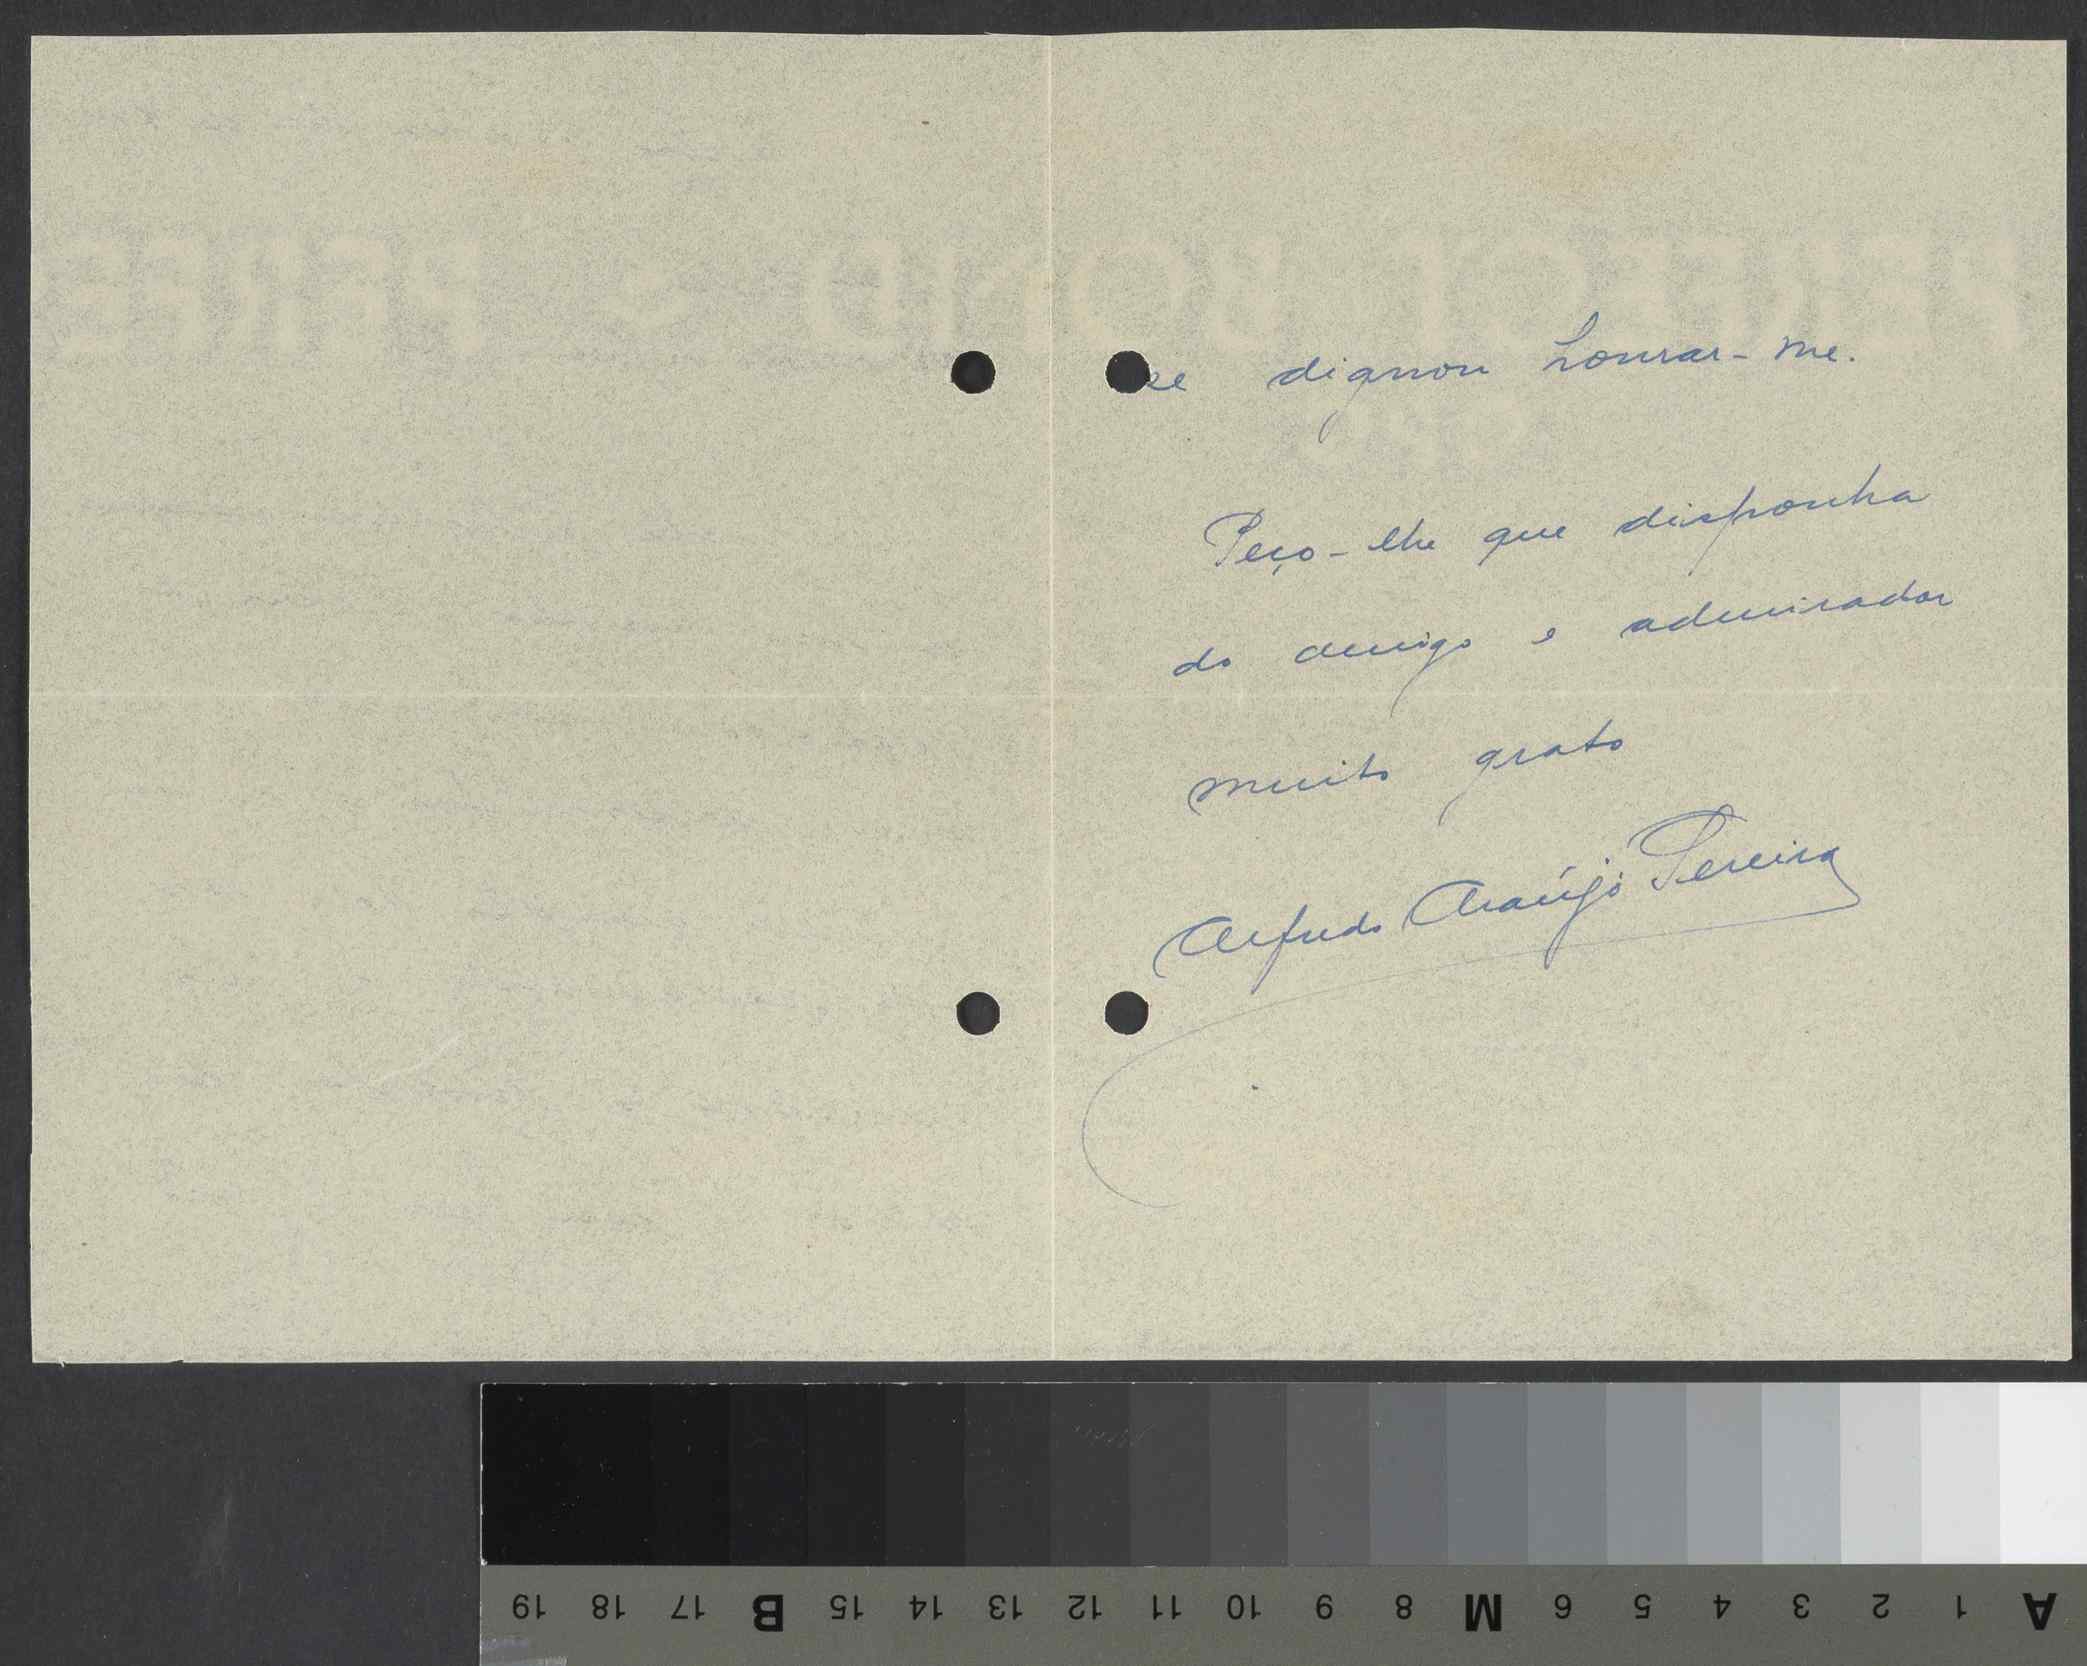 se dignou honrar-me.
Peço-lhe que disponha
do amigo e admirador
muito grato
Alfredo Araújo Pereira
19 18 17 B 15 14 13 12 11 10 9 8 M 6 5 4 3 2 1 A